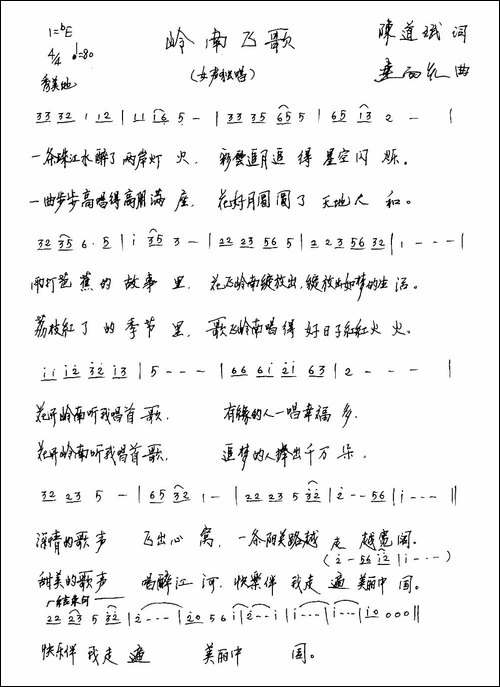 1=ᵇE
4/4 ♩=80
岭南飞歌
陳道斌 词
(女声独唱)
秀美地
曲
33 32 1 12 | 11 i6 5 - | 33 35 65 5 | 65 i3 2 - |
一条珠江水醉了两岸灯 火， 彩云追月追 得 星空闪 烁。
一曲步步高唱得高朋满 座， 花好月圆圆了 天地人 和。
32 35 6·5 | i 35 3 - | 22 23 56 5 | 22 3 56 32 | 1 - - - |
雨打芭 蕉 的 故事 里， 花飞岭南绽放出，绽放出如梦的生 活。
荔枝红 了 的 季节 里， 歌飞岭南唱得 好日子红红火 火。
ii i2 32 i3 | 5 - - - | 66 6i 2i 63 | 2 - - - |
花开岭南听我唱首 歌， 有缘的人一唱幸福 多，
花开岭南听我唱首 歌， 追梦的人捧出千万 朵，
32 23 5 - | 65 32 1 - | 22 23 5 32 | 2 - - 56 | i - - - ‖
深情的歌 声 飞出心 窝， 一条阳关路越 走 越宽阔。
(2 - 56 i2 | i - - -)
甜美的歌声 唱醉江 河，快樂伴 我走 遍 美丽中 国。
22 23 5 i2 | 2 - - - | 20 56 i | i - - - | i - - - | i0 0 0 0 ‖
快乐伴 我走 遍 美丽中 国。